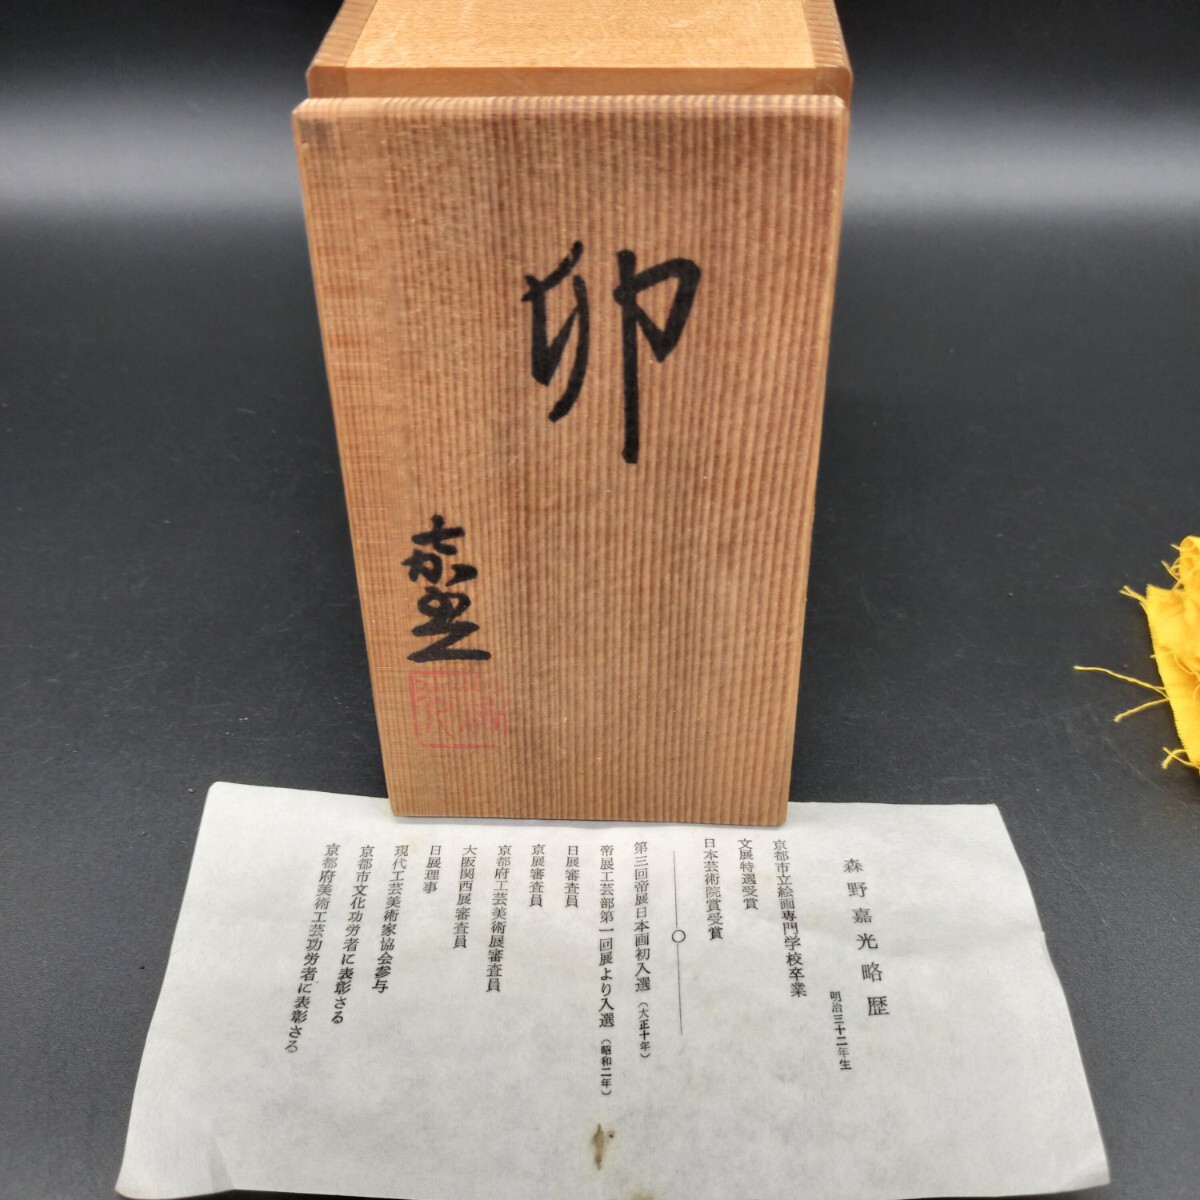 卯
嘉光
森野嘉光略歴
明治三十二年生
京都市立絵画専門学校卒業
文展特選受賞
日本芸術院賞受賞
第三回帝展日本画初入選（大正十年）
帝展工芸部第一回展より入選（昭和二年）
日展審査員
京展審査員
京都府工芸美術展審査員
大阪関西展審査員
日展理事
現代工芸美術家協会参与
京都市文化功労者に表彰さる
京都府美術工芸功労者に表彰さる